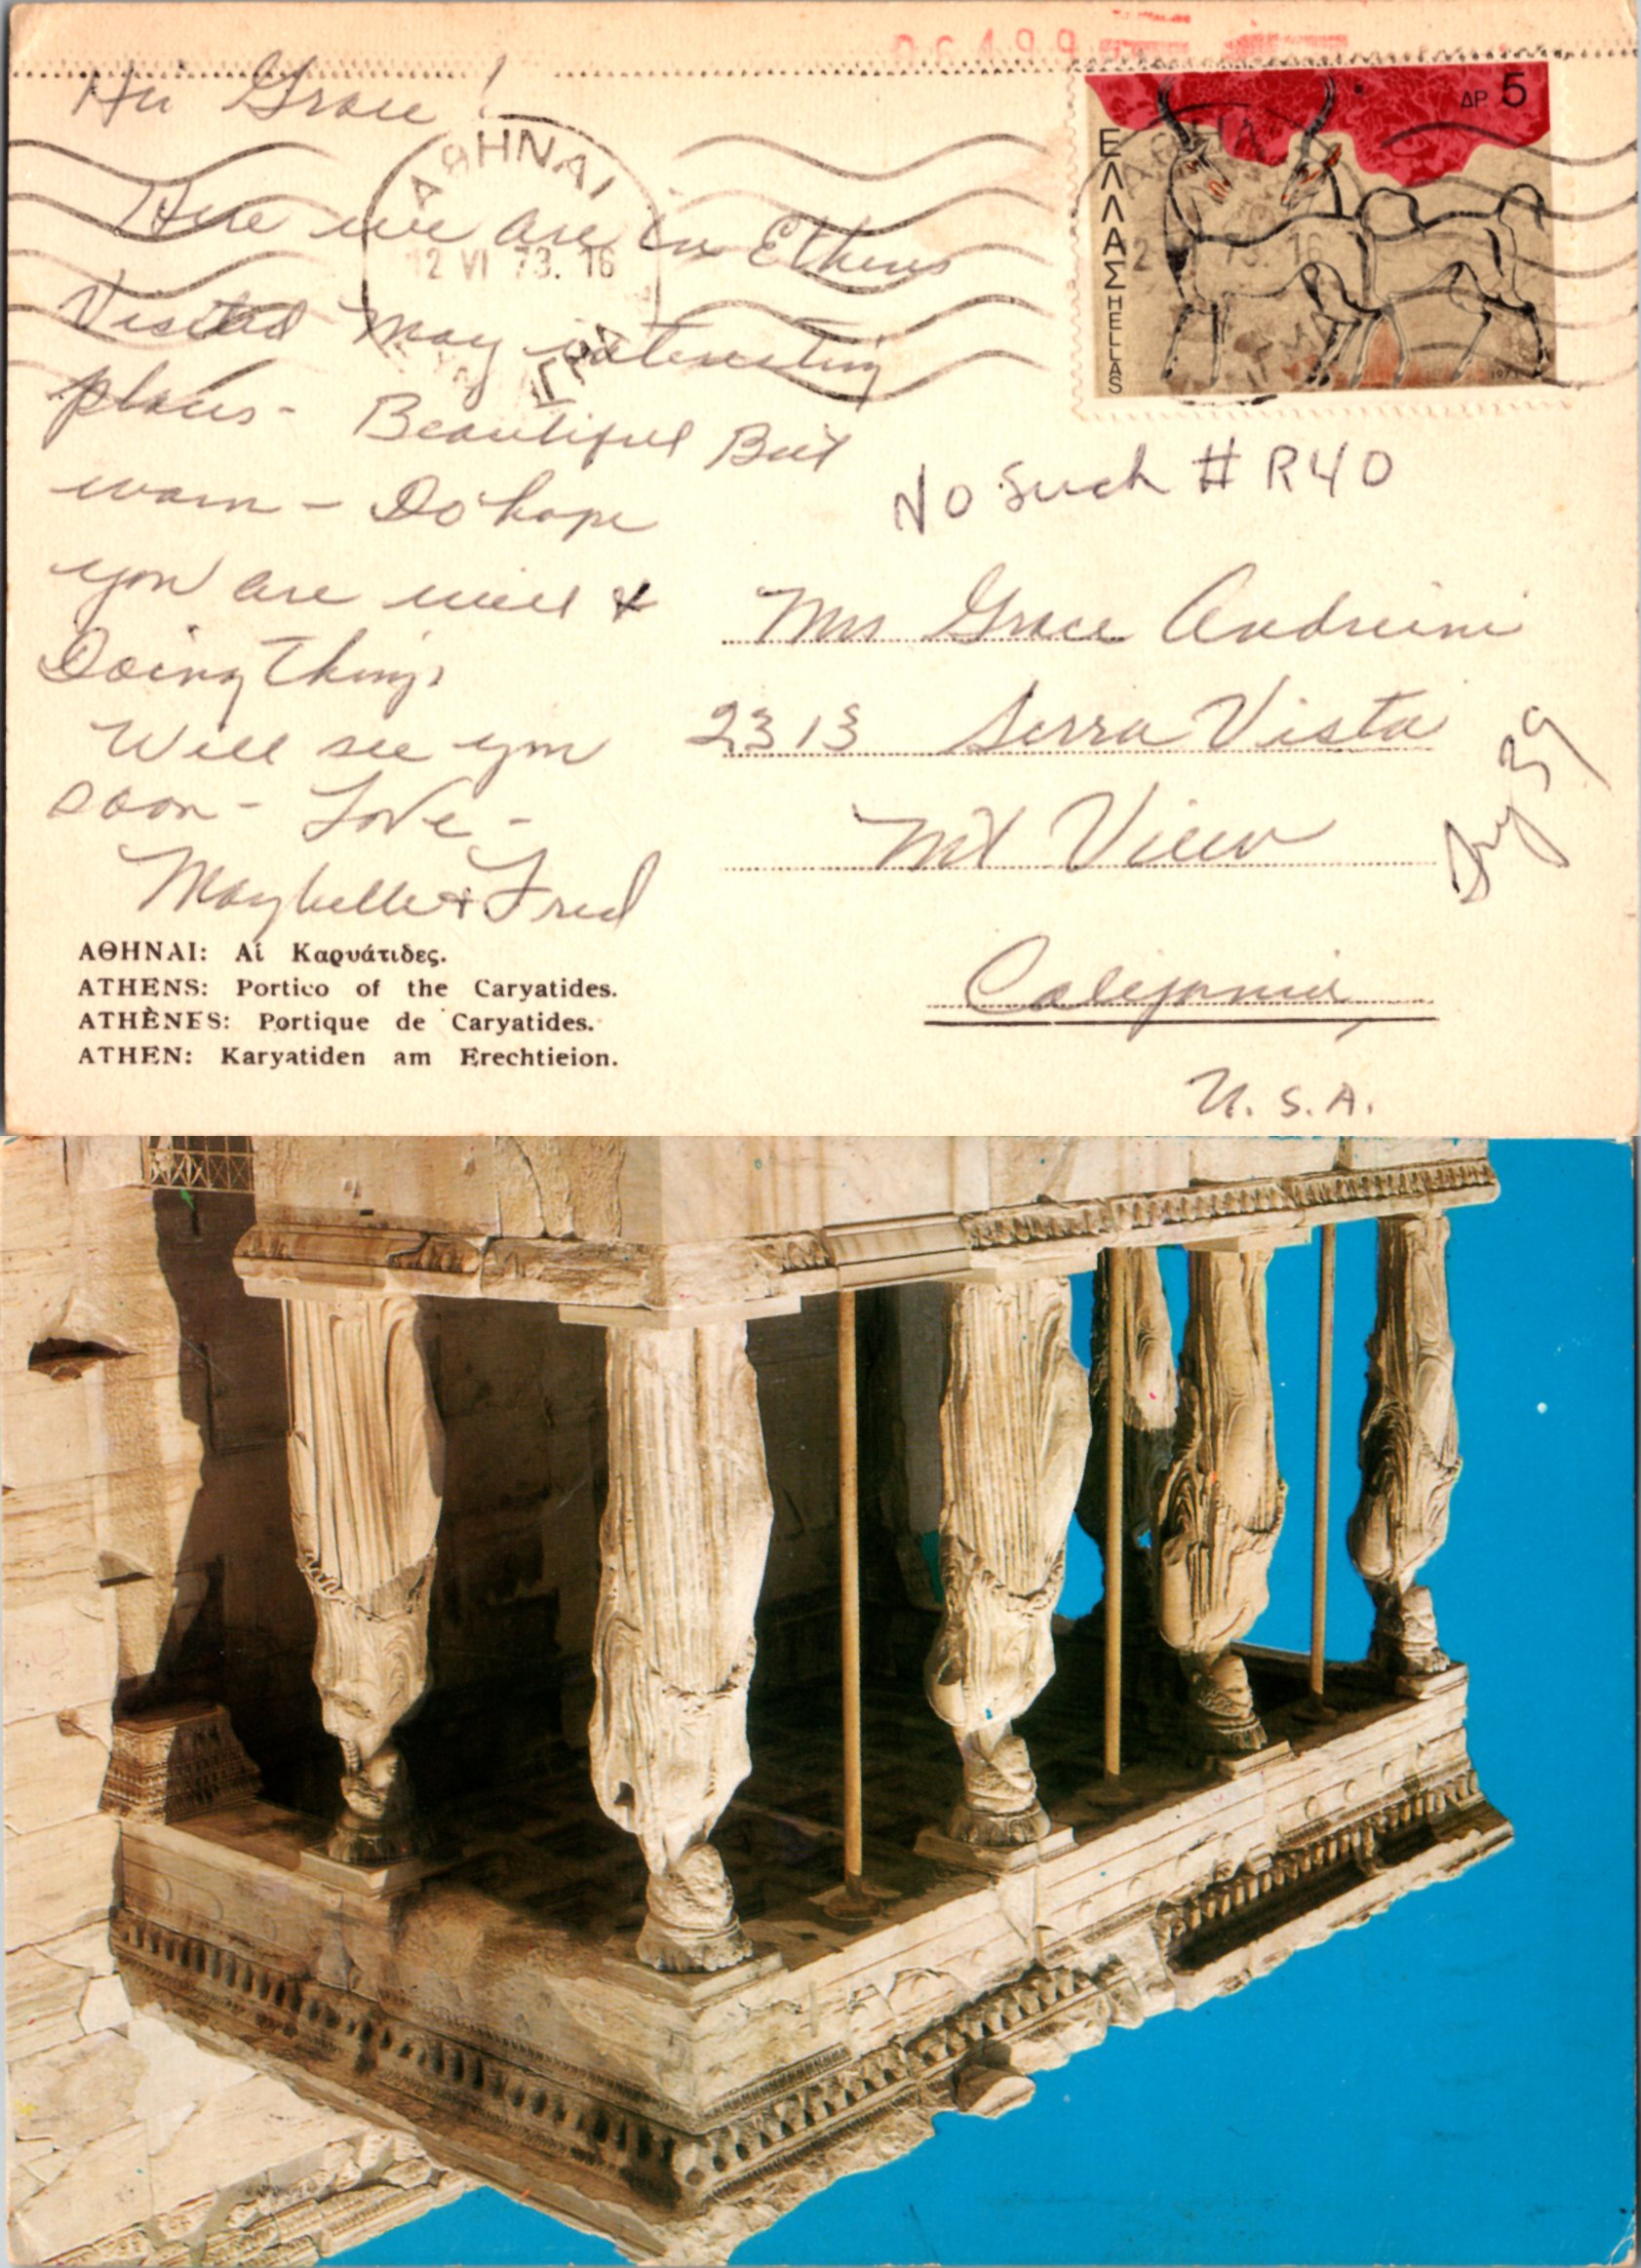 06499
Hi Grace!
Here we are in Ethens
Visited May interesting
places - Beautiful But
warm - Do hope
you are well &
Doing things
Will see you
soon - Love -
Maybelle + Fred
ΑΘΗΝΑΙ
12 VI 73. 16
ΔΡ 5
ΕΛΛΑΣ HELLAS
No Such # R40
Mrs Grace Andreini
2313 Serra Vista
Mt View
California,
U. S. A.
39
ΑΘΗΝΑΙ: Αἱ Καρυάτιδες.
ATHENS: Portico of the Caryatides.
ATHÈNES: Portique de Caryatides.
ATHEN: Karyatiden am Erechtieion.